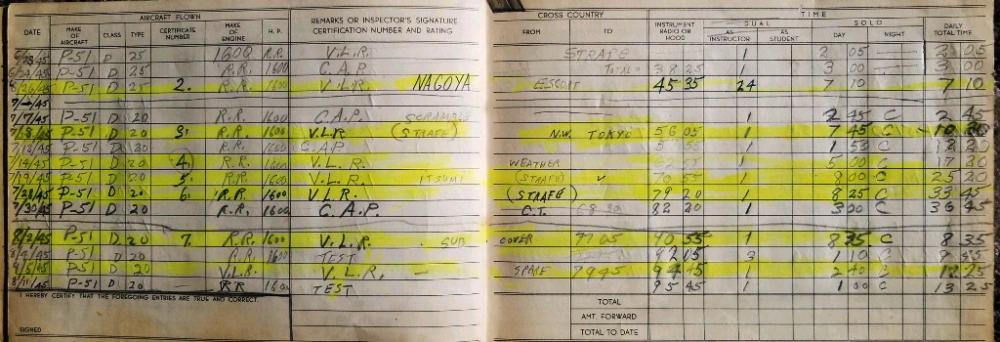 AIRCRAFT FLOWN
DATE MAKE OF AIRCRAFT CLASS TYPE CERTIFICATE NUMBER MAKE OF ENGINE H.P. REMARKS OR INSPECTOR'S SIGNATURE CERTIFICATION NUMBER AND RATING
CROSS COUNTRY TIME
FROM TO INSTRUMENT RADIO OR HOOD DUAL AS INSTRUCTOR AS STUDENT SOLO DAY NIGHT DAILY TOTAL TIME
P-51 D 25 R.R. V.L.R. STRAFE 1 2 05 2 05
D 25 R.R. 1600 C.A.P. TOTAL 38 25 1 3 00 3 00
P-51 D 25 2. R.R. 1600 V.L.R. NAGOYA ESCORT 45 35 24 7 10 7 10
7/7/45 P-51 D 20 R.R. 1600 C.A.P. SCRAMBLE 1 2 45 C 2 45
7/8/45 P-51 D 20 3. R.R. 1600 V.L.R (STRAFE) N.W. TOKYO 56 05 1 7 45 C
P-51 D 20 R.R. 1600 C.A.P. 1 1 53 C
7/14/45 P-51 D 20 4. R.R. 1600 V.L.R. WEATHER 1 5 00 C 17 20
7/19/45 P-51 D 20 5. R.R. 1600 V.L.R. (STRAFE) 70 55 1 8 00 C 25 20
7/28/45 P-51 D 20 6. R.R. 1600 V.L.R. (STRAFE) 79 20 1 8 25 C 33 45
7/30/45 P-51 D 20 R.R. 1600 C.A.P. C.T. 82 20 1 3 00 C 36 45
8/2/45 P-51 D 20 7. R.R. 1600 V.L.R. - SUB COVER 77 05 90 55 1 8 35 C 8 35
P-51 D 20 R.R. 1600 TEST 92 15 1 10 C
P-51 D 20 V.L.R. V.L.R. — 79 45 94 45 1 2 40 C 12 25
8/11/45 P-51 D 20 RR 1600 TEST 95 45 1 1 00 C 13 25
I HEREBY CERTIFY THAT THE FOREGOING ENTRIES ARE TRUE AND CORRECT.
TOTAL
AMT. FORWARD
SIGNED TOTAL TO DATE